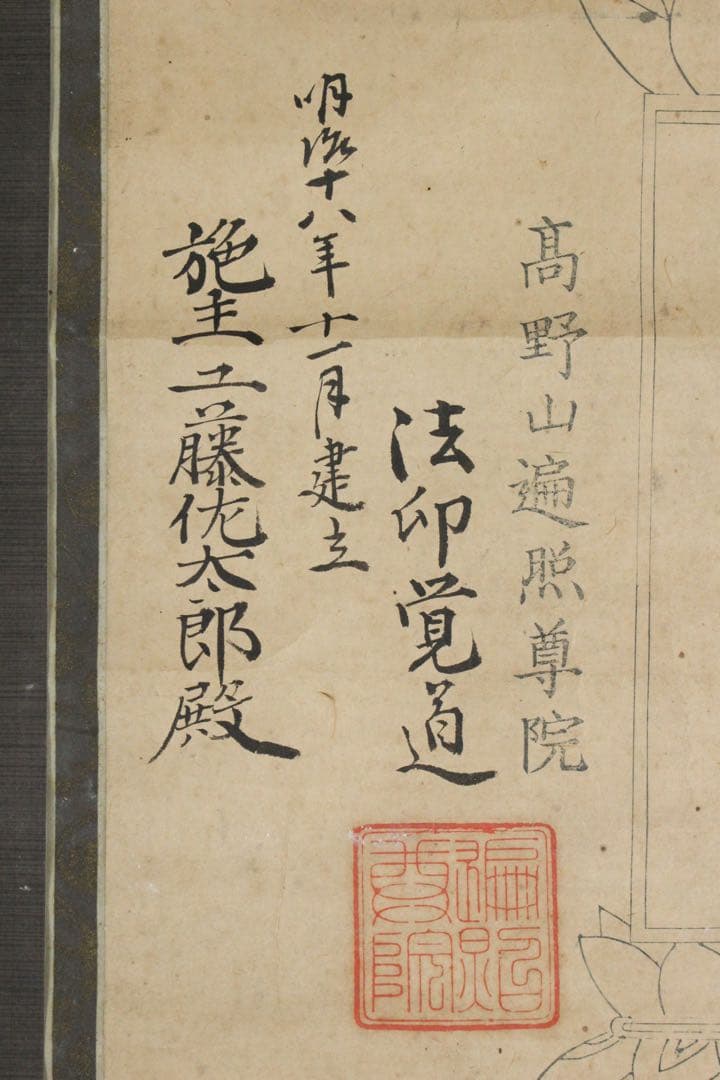 高野山遍照尊院
法印覚道
明治十八年十一月建立
施主工藤佐太郎殿
遍照
尊院